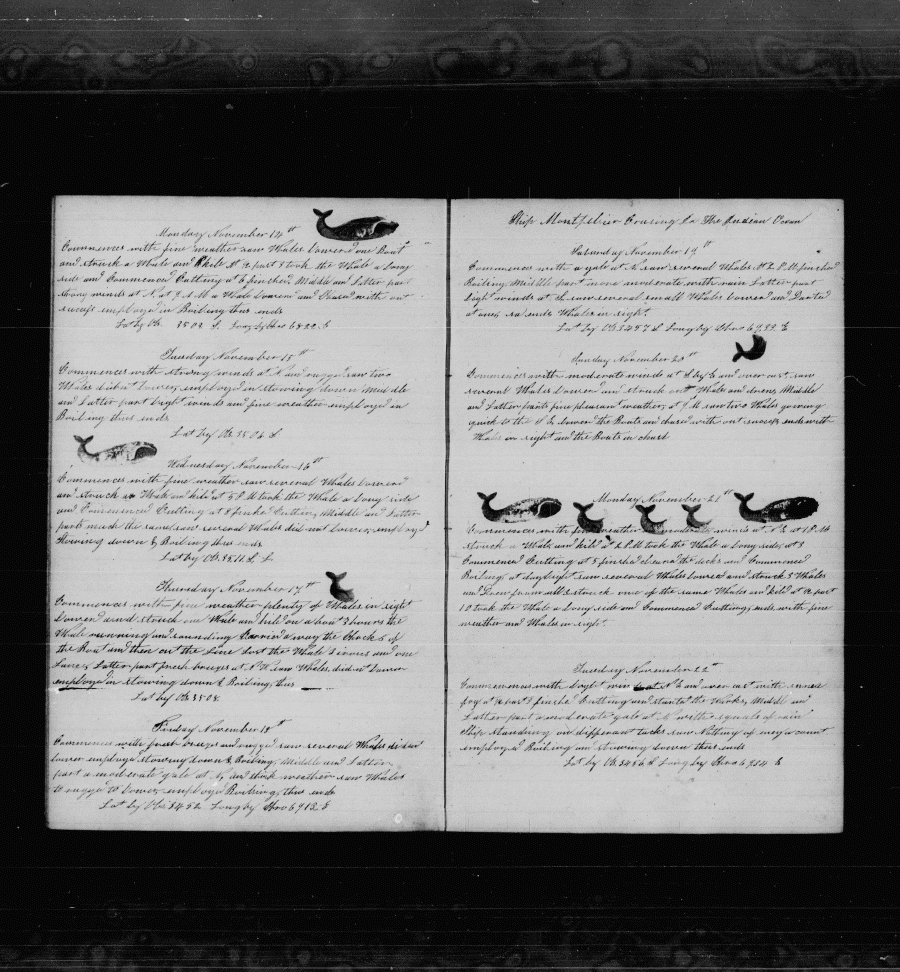 Monday November 14th
Commences with fine weather saw Whales lowered one Boat
and struck a Whale and kild at 2 part 3 took the Whale a long
side and Commenced Cutting at 6 finshed, Middle and Latter part
strong winds at N. at 7 A M a Whale lowered and Chased with out
sucsefs employed in Boiling thus ends
Lat by Ob. 3503 S. Long by Chro 6822 E
Tuesday November 15th
Commences with strong winds at N and rugged saw two
Whales did not lower, employed in stowing down Middle
and Latter part light winds and fine weather employed in
Boiling thus ends
Lat by Ob. 3506 S
Wednesday November 16th
Commences with fine weather saw several Whales lowered
and struck a Whale and kild at 5 P.M took the Whale a long side
and Commenced Cutting at 8 finshed Cutting, Middle and Latter
parts much the same, saw several Whales did not lower, employed
Stowing down & Boiling thus ends
Lat by Ob. 3511 S
Thursday November 17th
Commences with fine weather plenty of Whales in sight
Lowered and struck one Whale and hild on about 3 hours the
Whale running and sounding Carried a way the Chocks of
the Boat and then cut the Line Lost the Whale 2 irons and one
Lance, Latter part fresh breeses at N. W. saw Whales, did not lower
employed in stowing down & Boiling, thus
Lat by Ob. 3508
Friday November 18th
Commences with fresh breeses and rugged saw several Whales did not
lower employed stowing down & Boiling, Middle and Latter
part a moderate gale at N, and thick weather saw Whales
to rugged to Lower, employed Boiling, thus ends
Lat by Ob. 3452 Long by Chro 6912 E
Ship Montpelier Crusing In The Indian Ocean
Saturday November 19th
Commences with a gale at N. saw several Whales At 2 P.M finshed
Boiling Middle part more moderate with rain Latter part
Light winds at saw several small Whales lowered and Darted
at one, so ends Whales in sight.
Lat by Ob 3457 S Long by Chro 6953 E
Sunday November 20th
Commences with moderate winds at S by E and over cast saw
several Whales lowered and struck one Whale and drew, Middle
and Latter parts fine pleasant weather, at 9 A.M saw two Whales goieng
quick to the S E lowered the Boats and chased with out sucsefs ends with
Whales in sight and the Boats in chase
Monday November 21st
Commences with fine weather moderate winds at at 1 P.M
struck a Whale and kild at 2 P.M took the Whale a Long side, at 3
Commenced Cutting at 5 finshed cleared the decks and Commenced
Boiling, at daylight saw several Whales Lowered and struck 3 Whales
and Drew from all 3 struck one of the same Whales and kild at part
10 took the Whale a Long side and Commenced Cutting, ends with fine
weather and Whales in sight.
Tuesday November 22nd
Commences with Light win N E and over cast with some
fog at part 3 finshed Cutting and started the Works, Middle and
Latter part a moderate gale at N with squals of rain
Ship standing on different tacks saw Nothing of any acount
employed Boiling and stowing down thus ends
Lat by Ob. 3456 S Long by Chro 6954 E